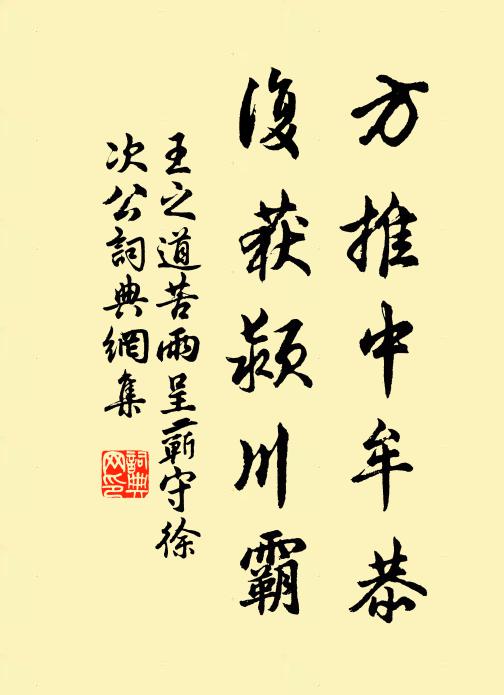 方推中牟恭
復获颍川霸
王之道苦雨呈蕲守徐
次公詞典網集
詞典网印